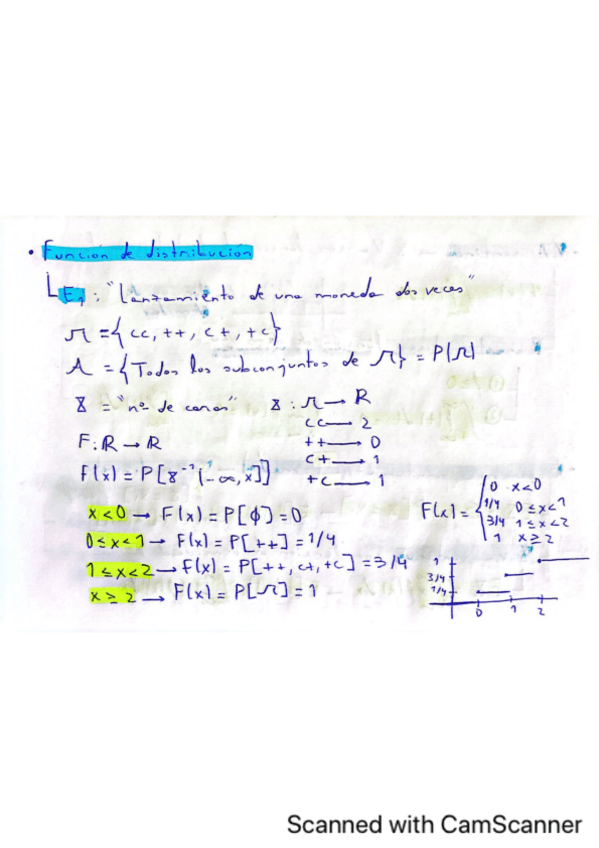 • Función de distribución
Ej: "Lanzamiento de una moneda dos veces"
Ω = {cc, ++, c+, +c}
A = {Todos los subconjuntos de Ω} = P(Ω)
X = "nº de caras" X: Ω → R
cc → 2
++ → 0
c+ → 1
+c → 1
F: R → R
F(x) = P[X⁻¹(-∞, x]]
x<0 → F(x) = P[ϕ] = 0
0≤x<1 → F(x) = P[++] = 1/4
1≤x<2 → F(x) = P[++, c+, +c] = 3/4
x≥2 → F(x) = P[Ω] = 1
F(x) = { 0 x<0
1/4 0≤x<1
3/4 1≤x<2
1 x≥2
1
3/4
1/4
0 1 2
Scanned with CamScanner